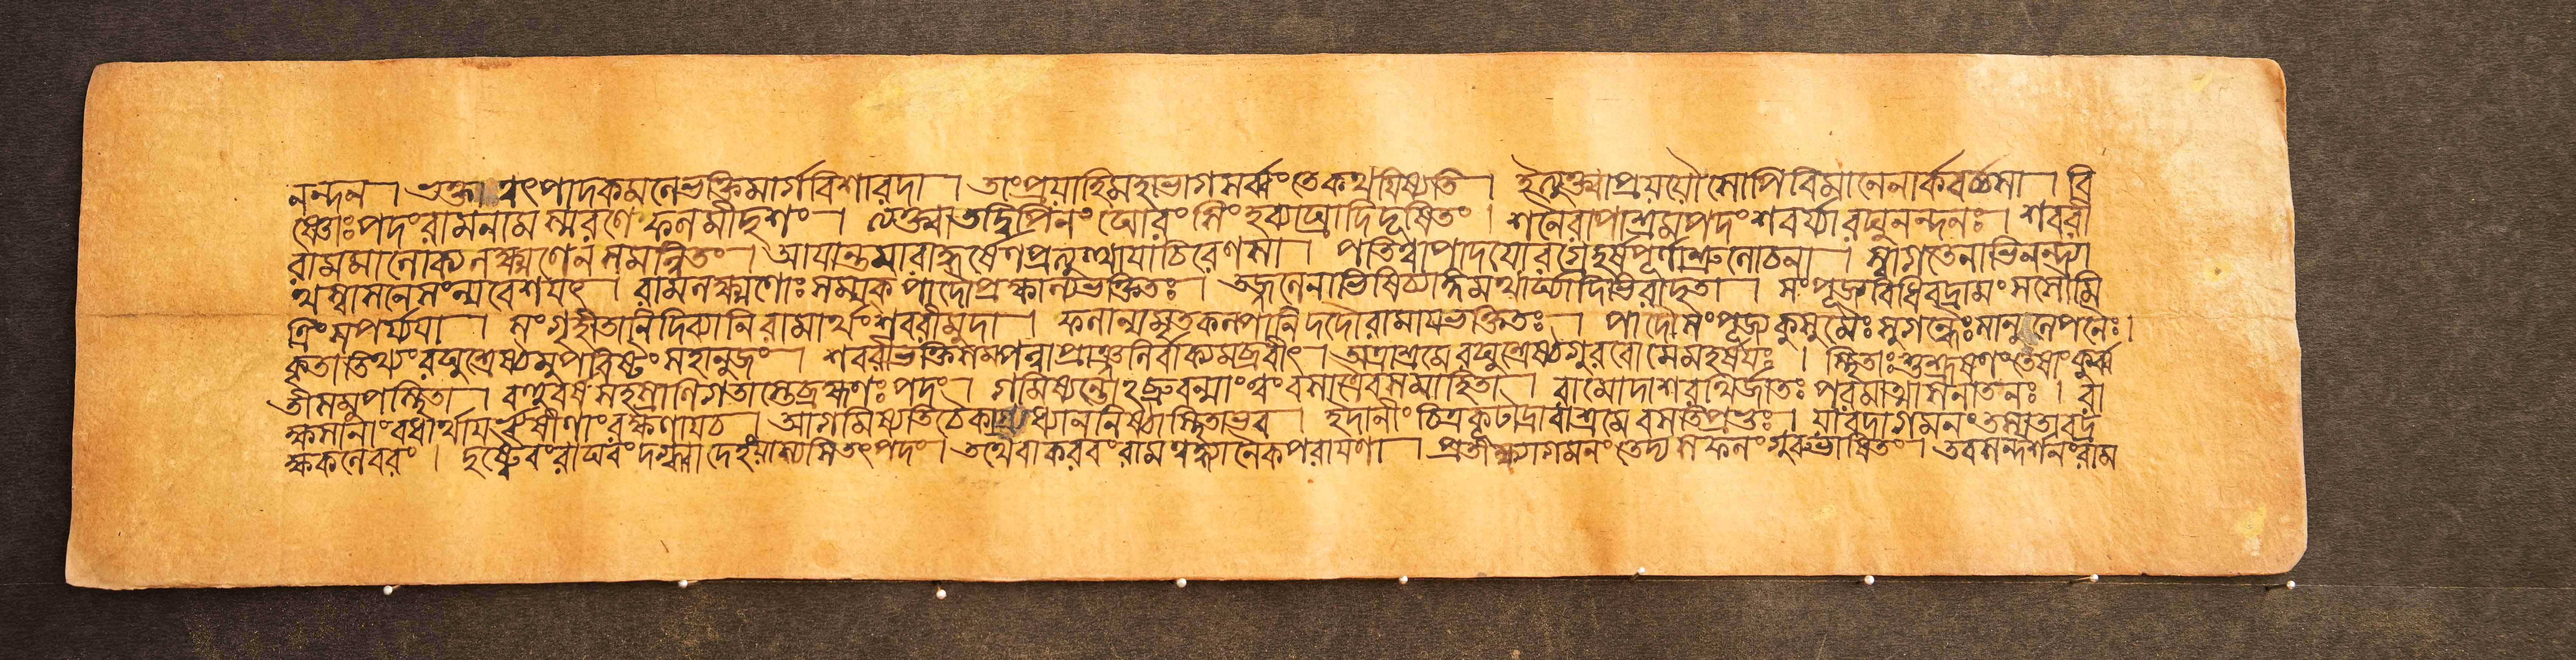 নন্দন । ভক্ত্যা ত্বৎপাদকমলেভক্তিমার্গবিশারদা । তাংপ্রয়াহিমহাভাগসর্ব্বংতেকথয়িষ্যতি । ইত্যুক্ত্বাপ্রযয়ৌসোপিবিমানেনার্কবর্চসা । বি
ষ্ণোঃপদংরামনামস্মরণেফলমীদৃশং । ত্যক্ত্বাতদ্বিপিনংঘোরংসিংহব্যাঘ্রাদিদূষিতং । শনৈরাপাশ্রমপদংশবর্য্যারঘুনন্দনঃ । শবরী
রামমালোক্যলক্ষ্মণেনসমন্বিতং । আয়ান্তমারাদ্ধর্ষেণপ্রত্যুত্থায়াচিরেণসা । পতিত্বাপাদয়োরগ্রেহর্ষপূর্ণাশ্রুলোচনা । স্বাগতেনাভিনন্দ্যা
থস্বাসনেসংন্যবেশয়ৎ । রামলক্ষ্মণোঃসম্যকপাদৌপ্রক্ষাল্যভক্তিতঃ । তজ্জলেনাভিষিচ্যাঙ্গমথার্ঘ্যাদিভিরাদৃতা । সংপূজ্যবিধিবদ্রামংসসৌমি
ত্রিংসপর্য্যয়া । সংগৃহীতানিদিব্যানিরামার্থংশবরীমুদা । ফলান্যমৃতকল্পানিদদৌরামায়ভক্তিতঃ । পাদৌসংপূজ্যকুসুমৈঃসুগন্ধৈঃসানুলেপনৈঃ।
কৃতাতিথ্যংরঘুশ্রেষ্ঠমুপবিষ্টংসহানুজং । শবরীভক্তিসম্পন্নাপ্রাঞ্জলির্বাক্যমব্রবীৎ । অত্রাশ্রমেরঘুশ্রেষ্ঠগুরবোমেমহর্ষয়ঃ । স্থিতাঃশুশ্রূষণংতেষাংকুর্ব্ব
তীসমুপস্থিতা । বহুবর্ষসহস্রাণিগতাস্তেব্রহ্মণঃপদং । গমিষ্যন্তোঽব্রুবন্মাংত্বংবসাত্রৈবসমাহিতা । রামোদাশরথির্জাতঃপরমাত্মাসনাতনঃ । রা
ক্ষসানাংবধার্থায়ঋষীণাংরক্ষণায়চ । আগমিষ্যতিচৈকাগ্রধ্যাননিষ্ঠাস্থিতাভব । ইদানীংচিত্রকূটাদ্রাবাশ্রমেবসতিপ্রভুঃ । যাবদাগমনংতস্যতাবদ্র
ক্ষকলেবরং । দৃষ্ট্বৈবংরাঘবংদগ্ধ্বাদেহংয়াস্যসিতৎপদং । তথৈবাকরবংরামত্বদ্ধ্যানৈকপরায়ণা । প্রতীক্ষ্যাগমনংতেদ্যসফলংগুরুভাষিতং । তবসন্দর্শনংরাম